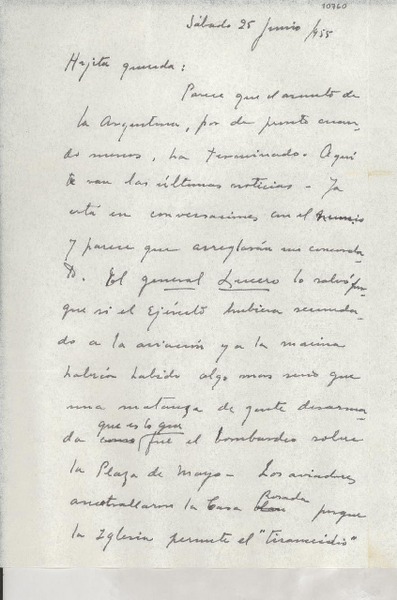 10760
Sábado 25 Junio /955
Hijita querida:
Parece que el asunto de
la Argentina, por de pronto cuan-
do menos, ha terminado. Aquí
te van las últimas noticias - Ya
está en conversaciones con el nuncio
y parece que arreglarán un concorda-
to. El general Lucero lo salvó por-
que si el Ejército hubiera secunda-
do a la aviación y a la marina
habría habido algo mas serio que
una matanza de gente desarma-
que es lo que
da como fue el bombardeo sobre
la Plaza de Mayo - Los aviadores
ametrallaron la Casa Rosada porque
la Iglesia permite el "tiranicidio"